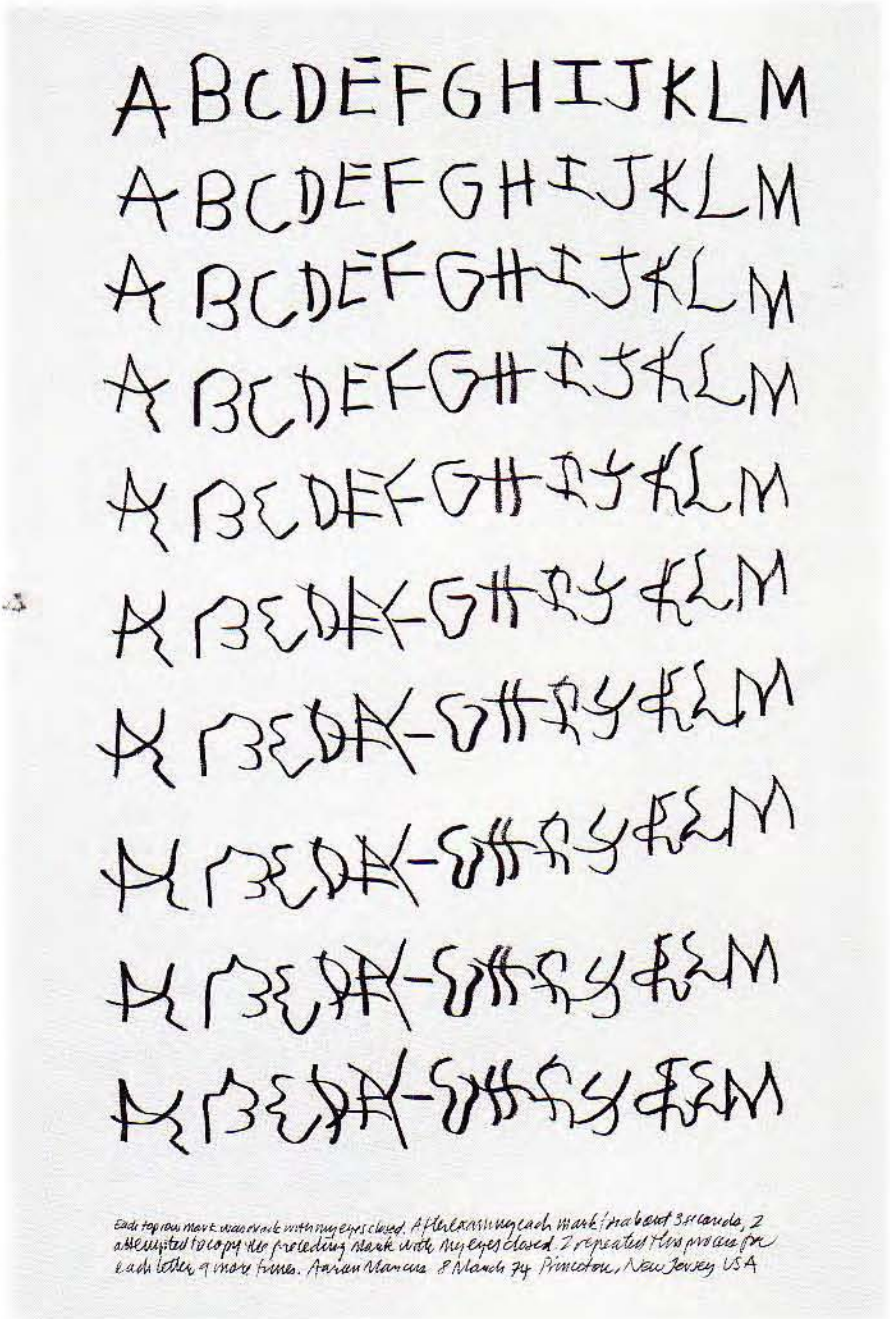 A B C D E F G H I J K L M
A B C D E F G H I J K L M
A B C D E F G H I J K L M
A B C D E F G H I J K L M
A B C D E F G H I J K L M
A B C D E F G H I J K L M
A B C D E F G H I J K L M
A B C D E F G H I J K L M
A B C D E F G H I J K L M
A B C D E F G H I J K L M
Each top row mark was made with my eyes closed. After examining each mark for about 3 seconds, I
attempted to copy the preceding mark with my eyes closed. I repeated this process for
each letter 9 more times. Aaron Marcus 8 March 74 Princeton, New Jersey USA